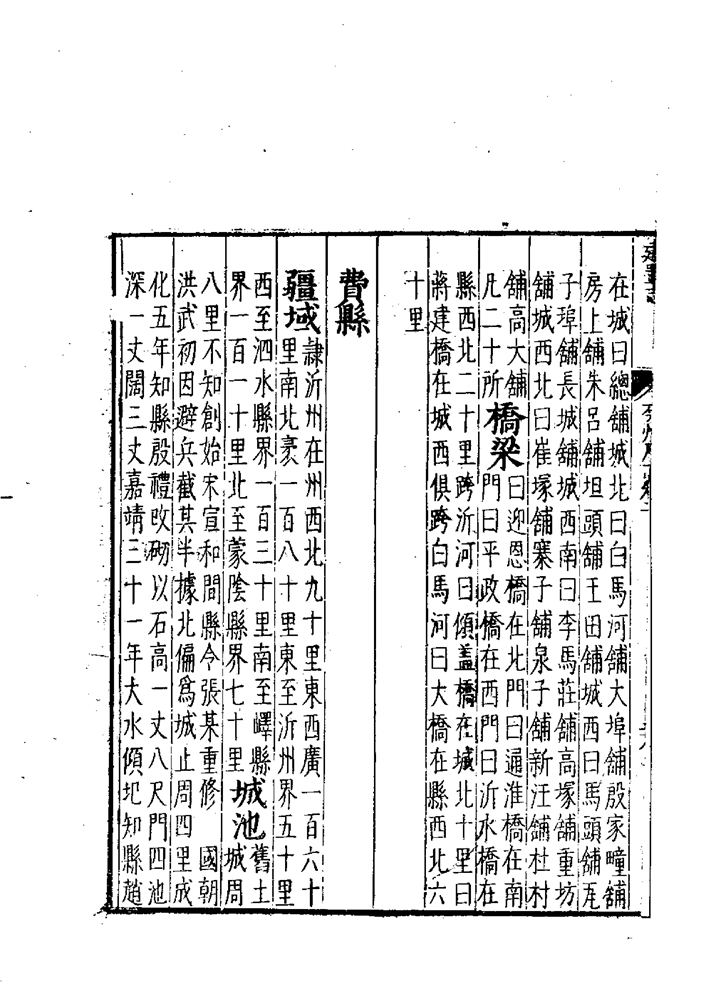 建置志
在城曰總舖城北曰白馬河舖大埠舖殷家疃舖
房上舖朱呂舖坦頭舖王田舖城西曰馬頭舖尾
子埠舖長城舖城西南曰李馬莊舖高塚舖重坊
舖城西北曰崔塚舖寨子舖泉子舖新汪舖杜村
舖高大舖
凡二十所
橋梁
曰迎恩橋在北門曰通淮橋在南
門曰平政橋在西門曰沂水橋在
縣西北二十里跨沂河曰傾盖橋在城北十里曰
蔣建橋在城西俱跨白馬河曰大橋在縣西北六
十里
費縣
疆域
隷沂州在州西北九十里東西廣一百六十
里南北袤一百八十里東至沂州界五十里
西至泗水縣界一百三十里南至嶧縣
界一百一十里北至蒙陰縣界七十里
城池
舊土
城周
八里不知創始宋宣和間縣令張某重修　國朝
洪武初因避兵截其半據北偏爲城止周四里成
化五年知縣殷禮改砌以石高一丈八尺門四池
深一丈闊三丈嘉靖三十一年大水傾圮知縣趙